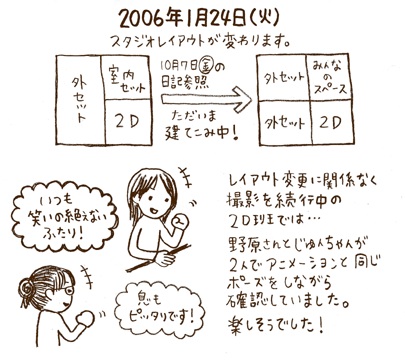 2006年1月24日(火)
スタジオレイアウトが変わります。
外セット
室内
セット
2D
10月7日(金)の
日記参照
ただいま
建てこみ中!
外セット
みんな
の
スペース
外セット
2D
いつも
笑いの絶えない
ふたり!
息も
ピッタリです!
レイアウト変更に関係なく
撮影を続行中の
2D班では…
野原さんとじゅんちゃんが
2人でアニメーションと同じ
ポーズをしながら
確認していました。
楽しそうでした!